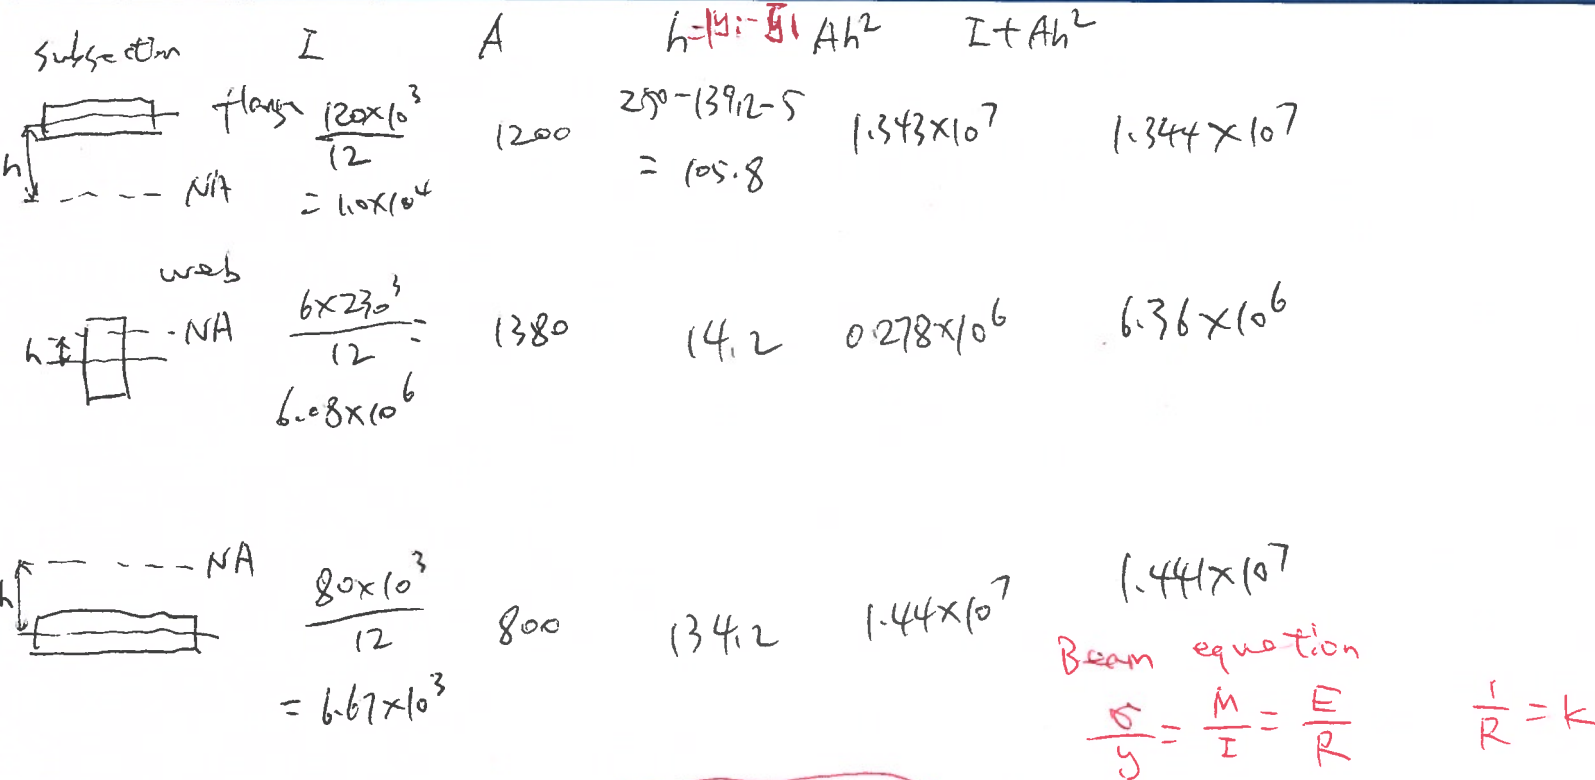 subsection I A h=|yi-ȳ| Ah² I+Ah²
flange 120×10³/12 = 1.0×10⁴ 1200 250-139.2-5 = 105.8 1.343×10⁷ 1.344×10⁷
h NA
web
h NA 6×230³/12 = 6.08×10⁶ 1380 14.2 0.278×10⁶ 6.36×10⁶
h NA 80×10³/12 = 6.67×10³ 800 134.2 1.44×10⁷ 1.441×10⁷
Beam equation
σ/y = M/I = E/R 1/R = k